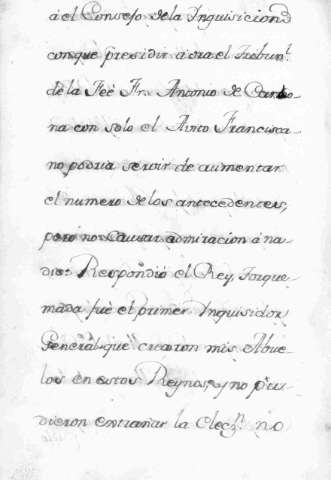 á el Consejo de la Inquisicion
conque presidir a ora el Tribunl.
de la Feè Fr. Antonio de Cardo-
na con solo el Avito Francisca-
no podria servir de aumentar
el numero de los antecedentes,
pero no causar admiracion á na-
die: Respondiò el Rey, Torque-
mada fuè el primer Inquisidor
General que crearon mis Abue-
los en estos Reynos, y no pu-
dieron entrañar la Elecn. no